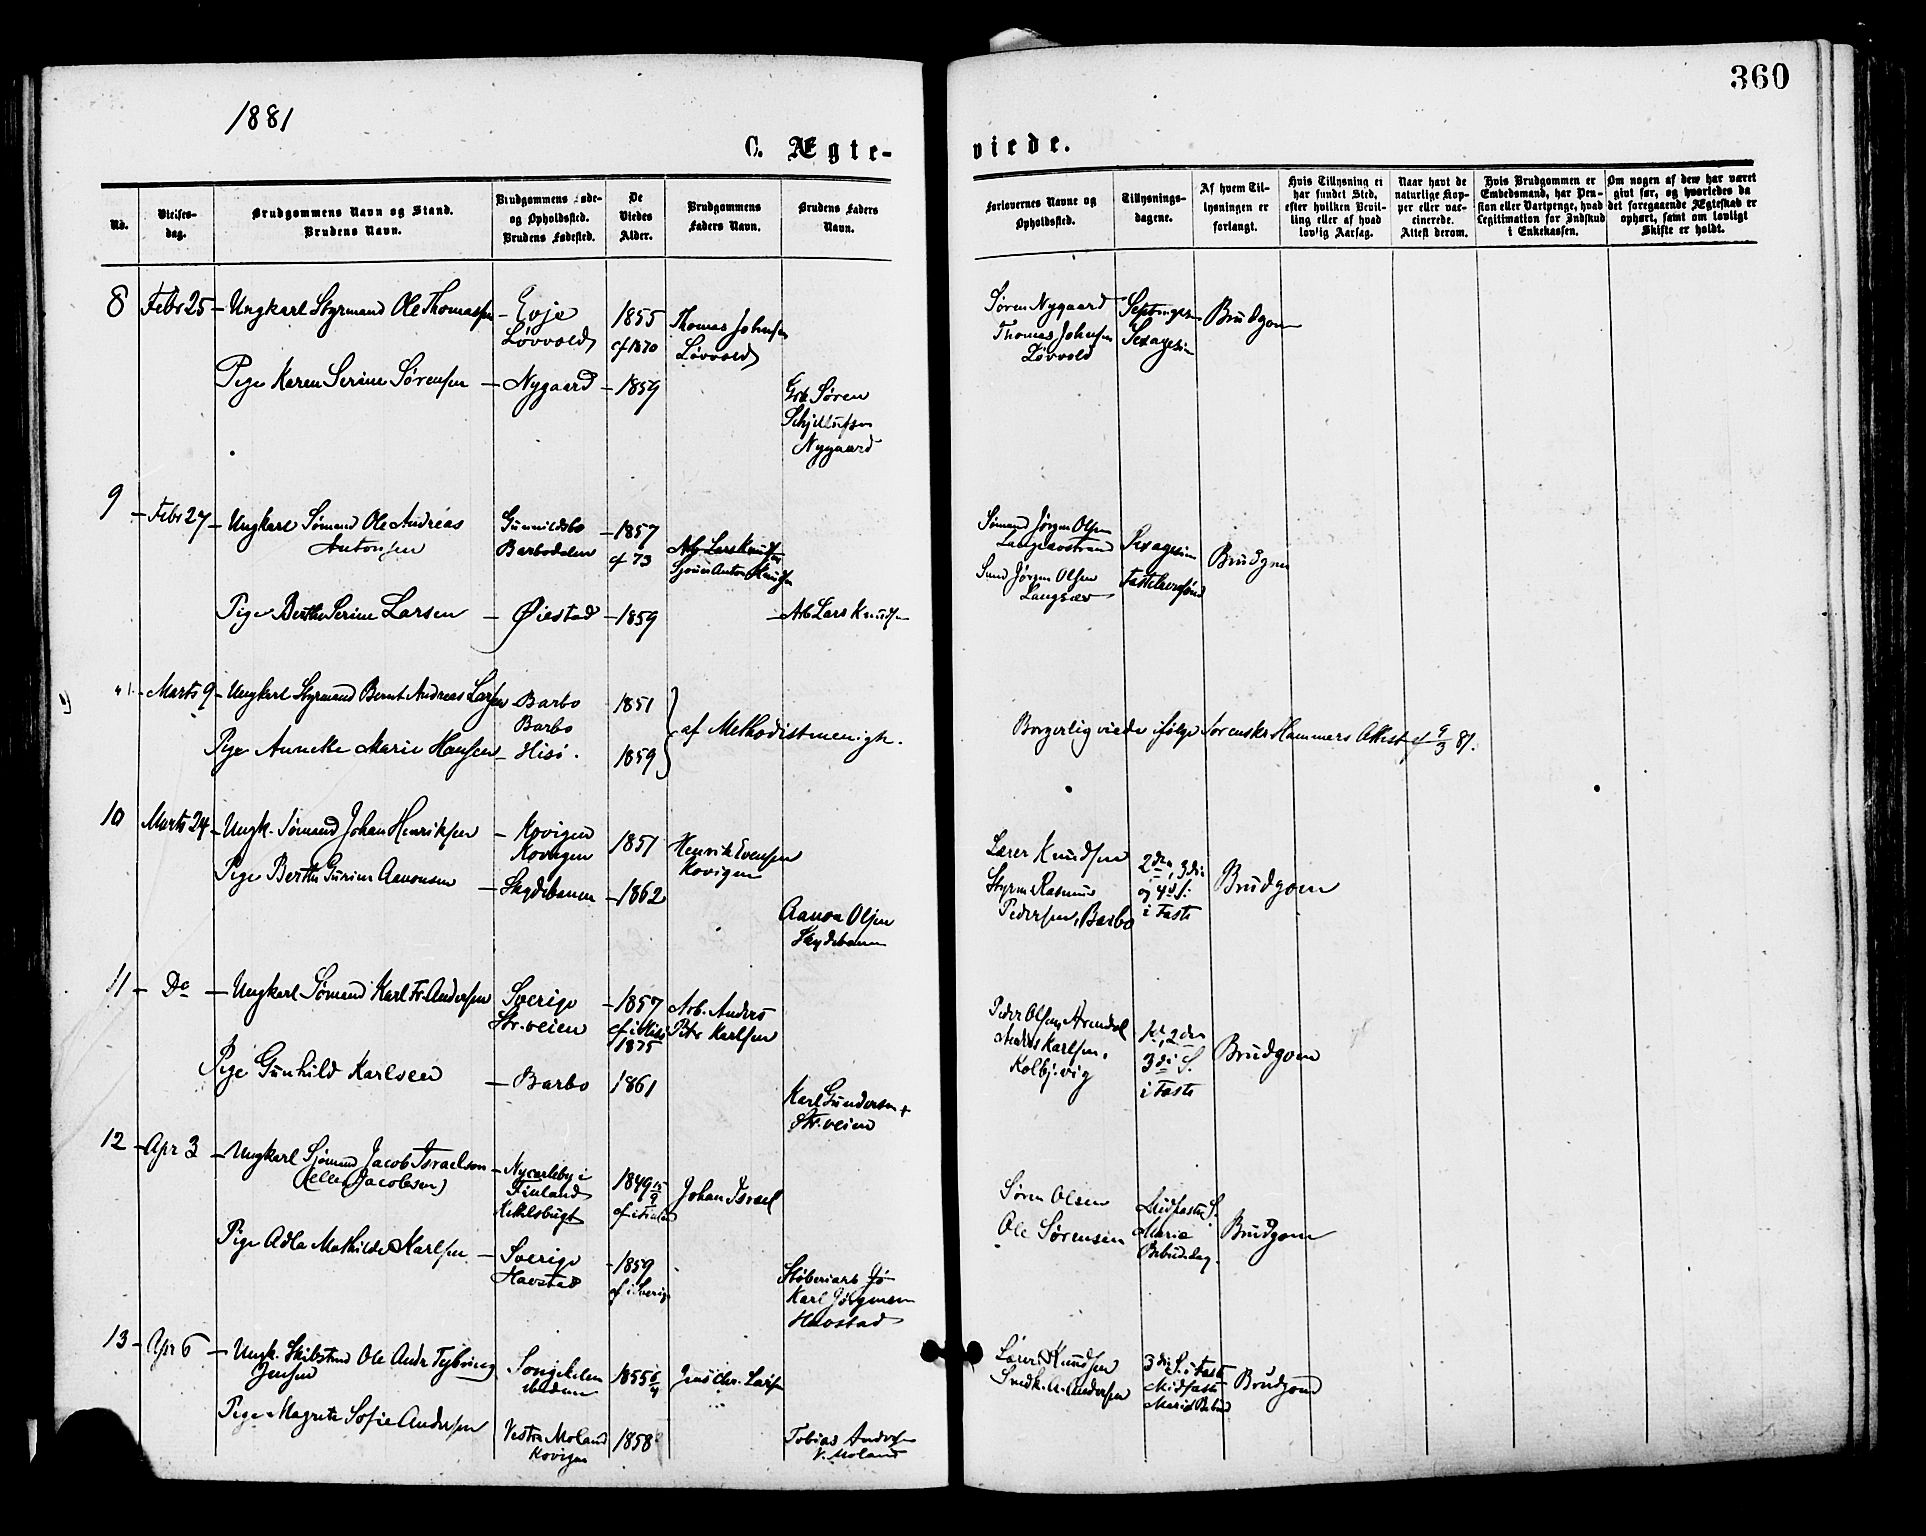 1881
360
C. Ægte-
viede.
No.
Vielses-
dag.
Brudgommens Navn og Stand.
Brudens Navn.
Brudgommens Føde-
og Opholdssted.
Brudens Fødested.
De
Viedes
Alder.
Brudgommens
Faders Navn.
Brudens Faders
Navn.
Forlovernes Navne og
Opholdssted.
Tillysnings-
dagene.
Af hvem Til-
lysningen er
forlangt.
Hvis Tillysning ei
har fundet Sted,
efter hvilken Bevil-
ling eller af hvad
lovlig Aarsag.
Naar havt de
naturlige Kop-
per eller vac-
cinerede.
Attest derom.
Hvis Brudgommen er
Embedsmand, har Pen-
sion eller Vartpenge, hvad
Legitimation for Indskud
i Enkekassen.
Om nogen af dem har været
givt før, og hvorledes da
det foregaaende Ægteskab er
ophørt, samt om lovligt
Skifte er holdt.
8 Febr 25 - Ungkarl Styrmand Ole Thomassen - Evje 1855 Thomas Johnsen
Løvvold cf 1870 Løvvold
Pige Karen Serine Sørensen - Nygaard - 1859
Søren
Nygaard
Søren Nygaard Septuages Brudgom
Thomas Johnsen Sexagesim
Løvvold
9 - Febr 27 - Ungkarl Sømand Ole Andreas Gunnildsbo - 1857
Antonsen Barbodalen cf 73 Arb Lars Knudsen
Anton Knudsen
Pige Berthe Serine Larsen - Øiestad - 1859 - Arb Lars Knudsen
Sømand Jørgen Olsen
Sexagesim Brudgom
Jørgen Olsen Fastelavnssønd
Langsæv
Marts 9 - Ungkarl Styrmand Bernt Andreas Larsen - Barbo 1851
Barbo
Pige Annette Marie Hansen - Hisø. 1859
af Methodistmenigh.
Borgerlig viede ifølge Sorenskr Hammers Attest af 9/3 81.
10 Marts 24 - Ungk. Sømand Johan Henriksen - Kovigen 1851 Henrik Evensen
Kovigen Kovigen
Pige Berthe Gurine Aanonsen - Skydebanen - 1862
Aanon Olsen
Skydebanen
Lærer Knudsen 2den, 3die Brudgom
Styrm Rasmus og 4de S.
Pedersen, Barbo i Faste
11 - Do - Ungkarl Sømand Karl Fr. Andersen Sverige - 1857 Arb. Anders
Str.veien cf i Hisø Peter Karlsen
1875
Pige Gunhild Karlsen - Barbo 1861
Karl Gundersen +
Str.veien
Peder Olsen, Arendal 1ste, 2den Brudgom
Anders Karlsen, 3die S.
Kolbj.vig i Faste
12 - Apr 3 - Ungkarl Sjømand Jacob Israelson - Nycarleby i 1849 15/9 Johan Israel
(eller Jacobsen) Finland
Kittilsbugt
Pige Adla Mathilde Karlsen - Sverige - 1859
Havstad cf i Sverige
Karl Jörgensen
Havstad
Søren Olsen Midfaste S. Brudgom
Ole Sörensen Mariæ
Bebud.dag.
13 - Apr 6 - Ungk. Skibstmd Ole Andr Tybring Songekilen 1855 Jens Chr. Larsen
Jensen
Pige Magrete Sofie Andersen Vestre Moland 1858 Tobias Andersen
Kovigen V. Moland
Lærer Knudsen 3die S. i Faste Brudgom
Snedk. A. Andersen Midfaste
Mariæ Bebud